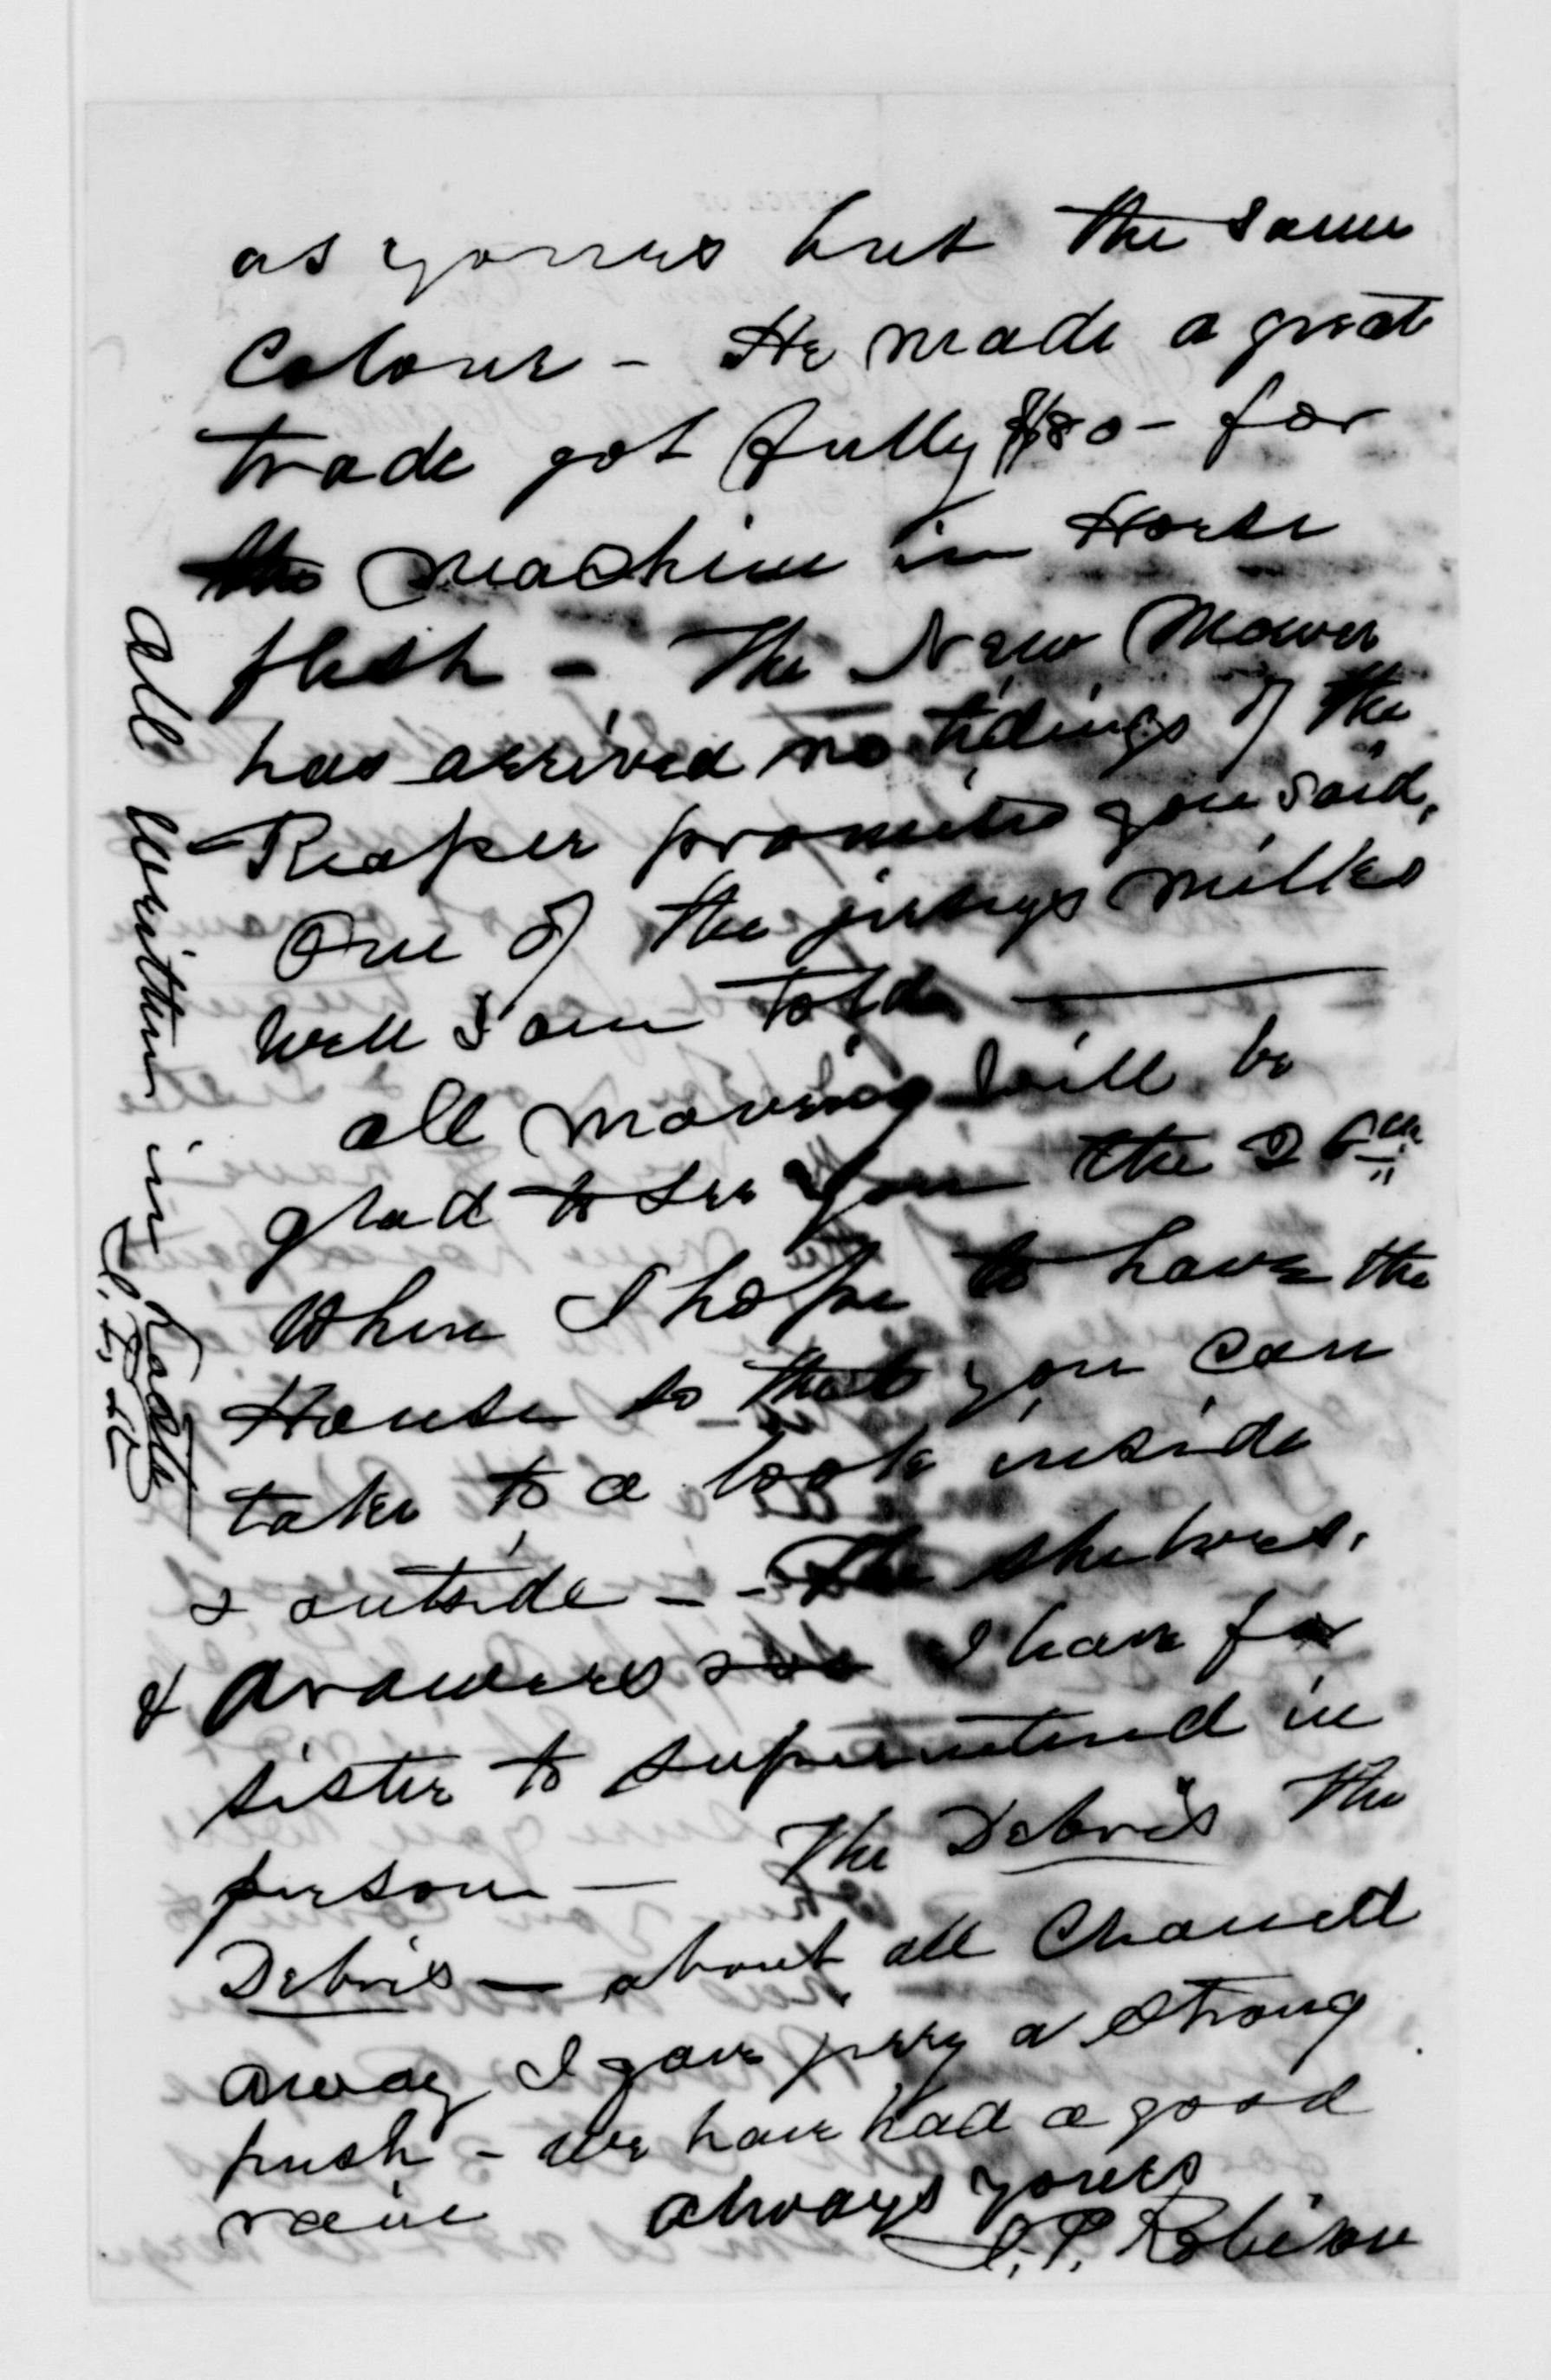 as yours but the same
Colour - He made a great
trade got fully $80 - for
the machine in Horse
flesh - The New Mower
has arrived no tidings of the
Reaper promised you said,
One of the jerseys milks
well I am told
all moving will be
glad to see you the 26th
When I hope to have the
House so that you can
take to a look inside
& outside - - The shelves.
& drawers I have for
sister to superintend in
person - The Debris The
Debris - about all Cleaned
away I gave perry a strong
push - We have had a good
rain always yours
J. P. Robison
all written in haste
J. P. R